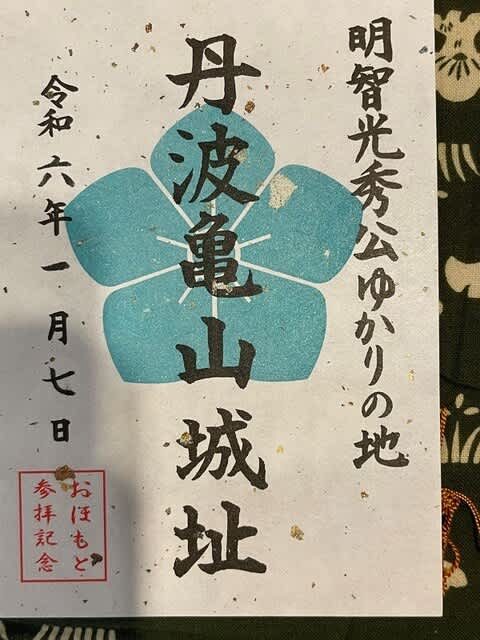 明智光秀公ゆかりの地
丹波亀山城址
令和六年一月七日
おほもと
参拝記念